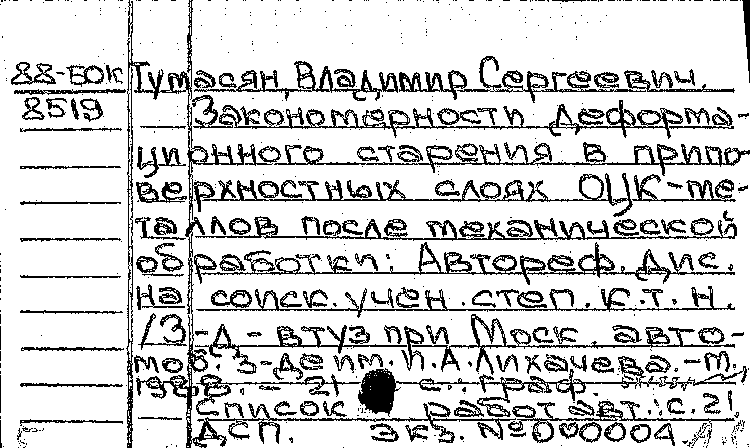 88-БОК Тумасян, Владимир Сергеевич.
8519 Закономерности деформа-
ционного старения в припо-
верхностных слоях ОЦК-ме-
таллов после механической
обработки: Автореф. дис.
на соиск. учен. степ. к. т. н.
/З-д-втуз при Моск. авто-
моб. з-де им. И.А.Лихачева.-М.,
1988. - 21 с.: граф.
Список работ авт.: с. 21.
ДСП. Экз. №000004